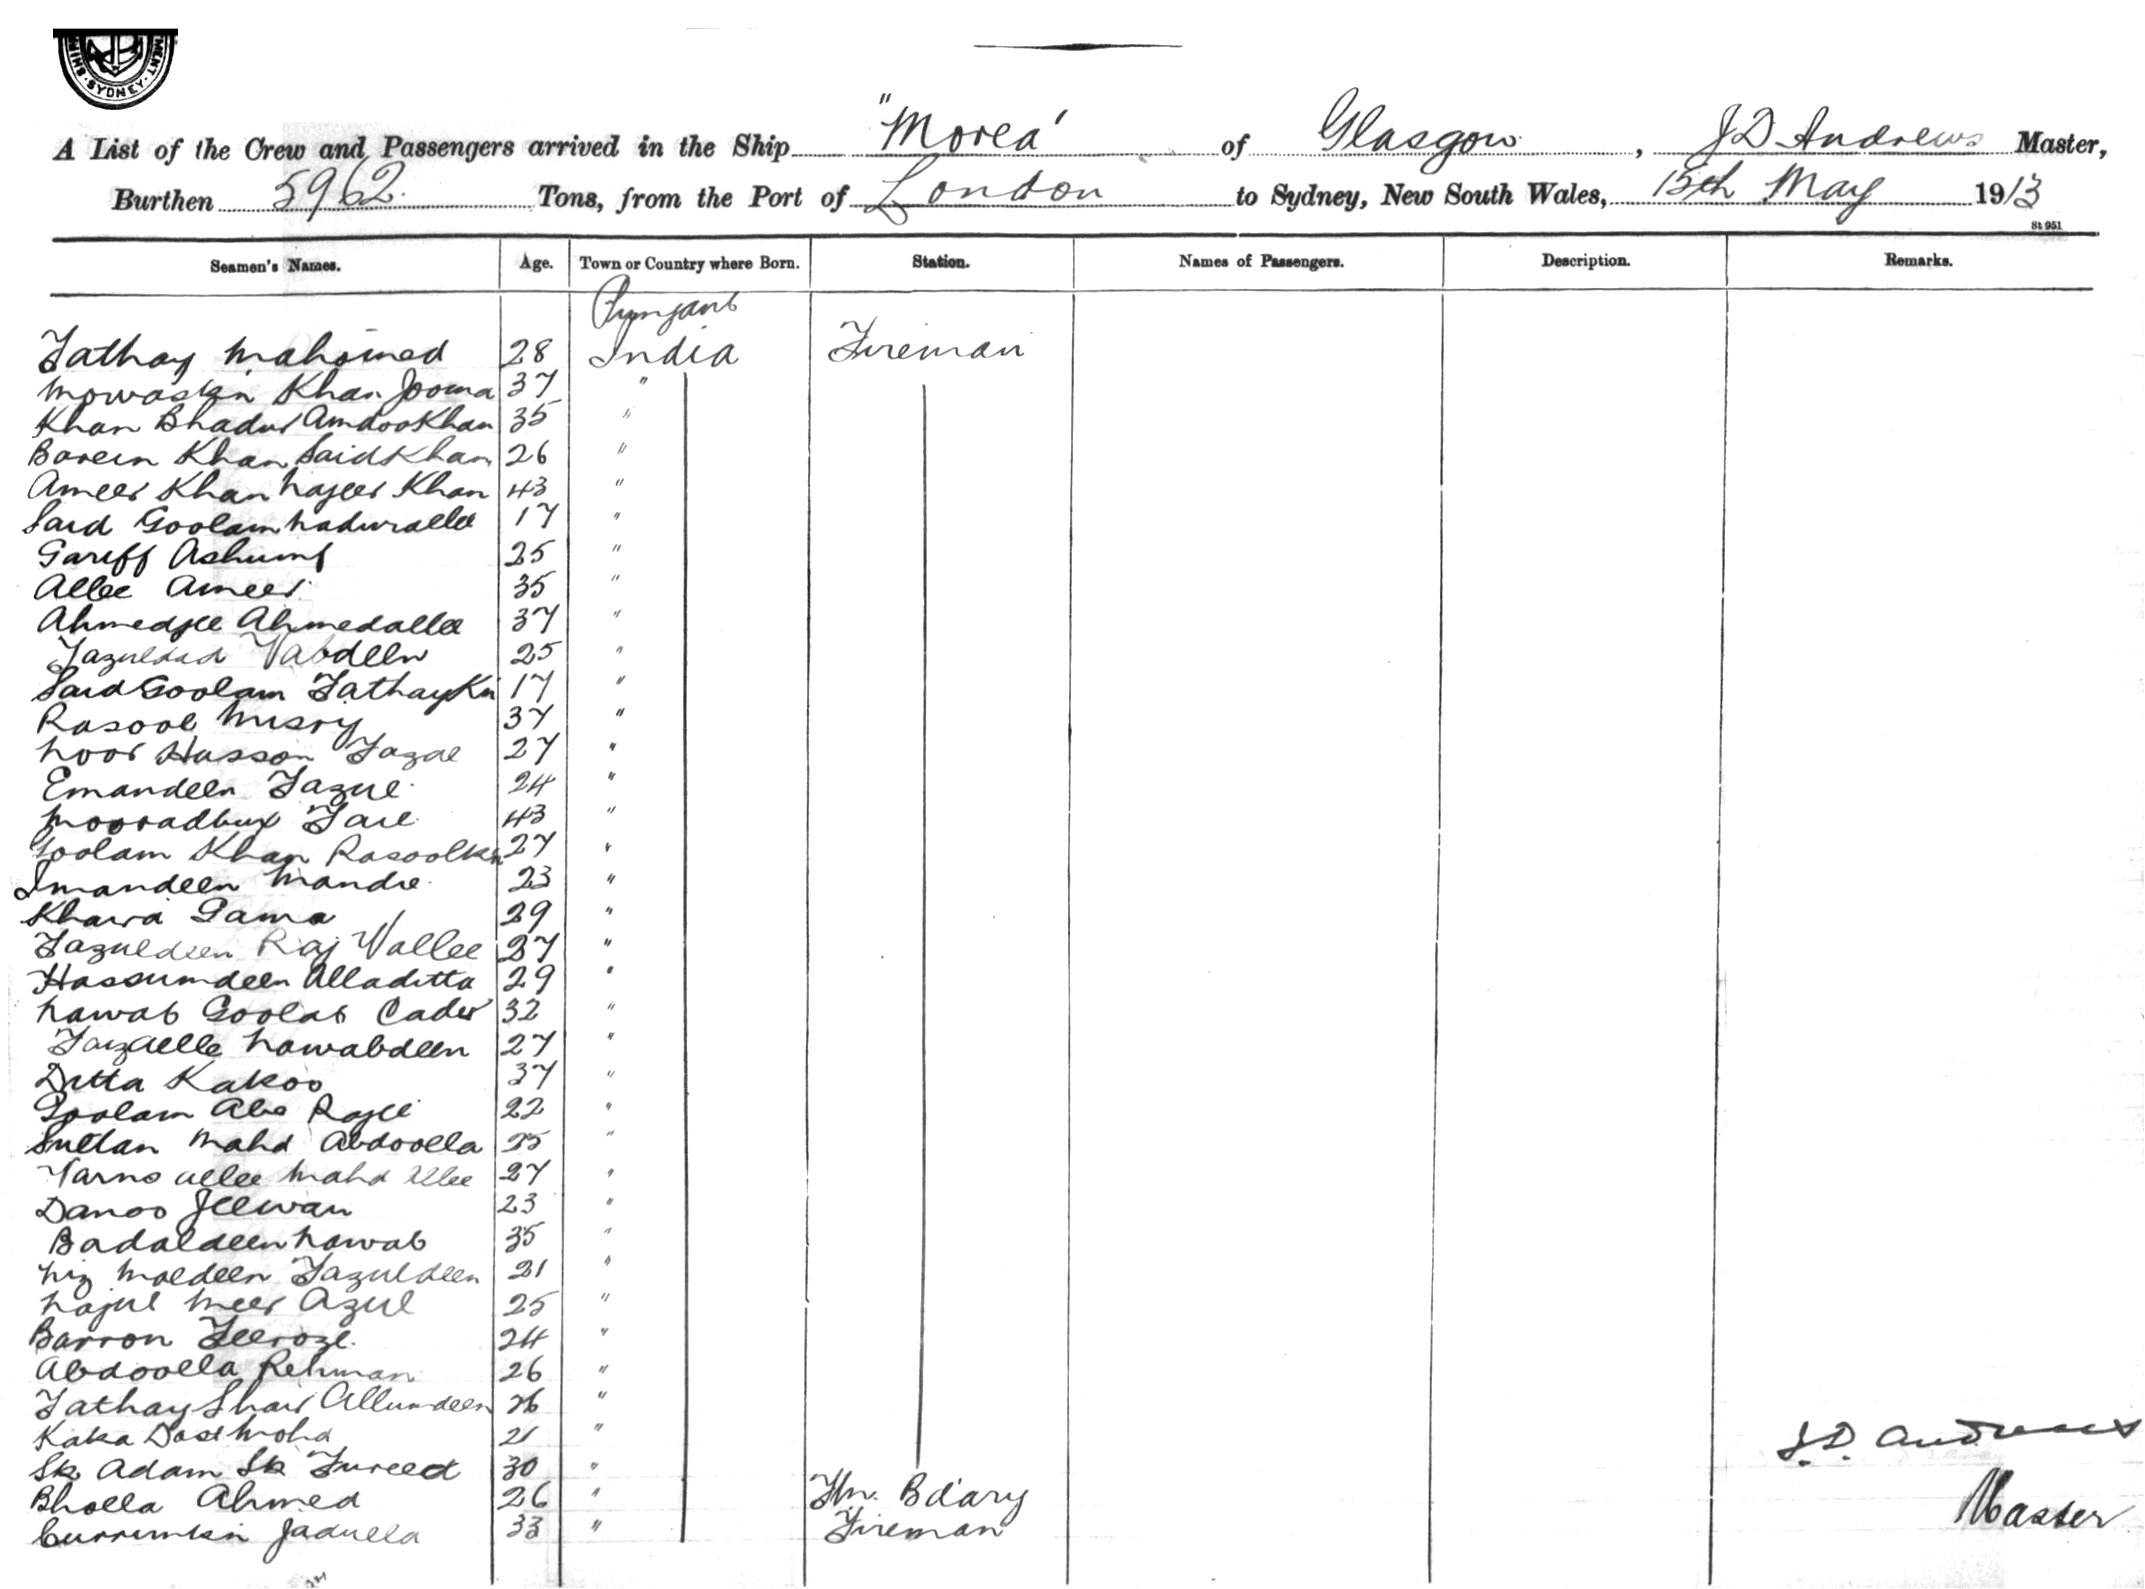 MENT. SYDNEY. SHIP
A List of the Crew and Passengers arrived in the Ship "Morea" of Glasgow, J D Andrews Master,
Burthen 5962 Tons, from the Port of London to Sydney, New South Wales, 15th May 1913
St 951
Seamen's Names. Age. Town or Country where Born. Station. Names of Passengers. Description. Remarks.
Punjaub
Fathay Mahomed 28 India Fireman
Mowaskn Khan Jooma 37 "
Khan Bhadur Amdoo Khan 35 "
Borein Khan Said Khan 26 "
Ameer Khan Najeer Khan 43 "
Said Goolam Nadurallee 17 "
Gariff Ashumf 25 "
Allee Ameer 35 "
Ahmedjee Ahmedallee 37 "
Fazuldad Vabdeen 25 "
Said Goolam Fathay Kn 17 "
Rasool Misry 37 "
Noor Hasson Fazal 27 "
Emandeen Fazul 24 "
Mooradbux Fare 43 "
Goolam Khan Rasoolkn 27 "
Imandeen Mandie 23 "
Khawa Gama 29 "
Fazuldeen Raj Vallee 37 "
Hassumdeen Alladitta 29 "
Nawab Goolab Cader 32 "
Faizallle Nawabdeen 27 "
Ditta Kakoo 37 "
Goolam Abo Rajee 22 "
Sultan Mahd Abdoolla 25 "
Varno allee Mahd Allee 27 "
Danoo Jeewan 23 "
Badaldeen Nawab 35 "
Niz Moldeen Fazuldeen 21 "
Najul Meer Azul 25 "
Barron Feeroze 24 "
Abdoolla Rehman 26 "
Fathay Shair Allumdeen 26 "
Kaka Dost Mohd 21 " J.D. Andrews
Sk Adam Sk Fureed 30 "
Bholla Ahmed 26 " Fln. Bdary Master
Currumkn Jadulla 33 " Fireman